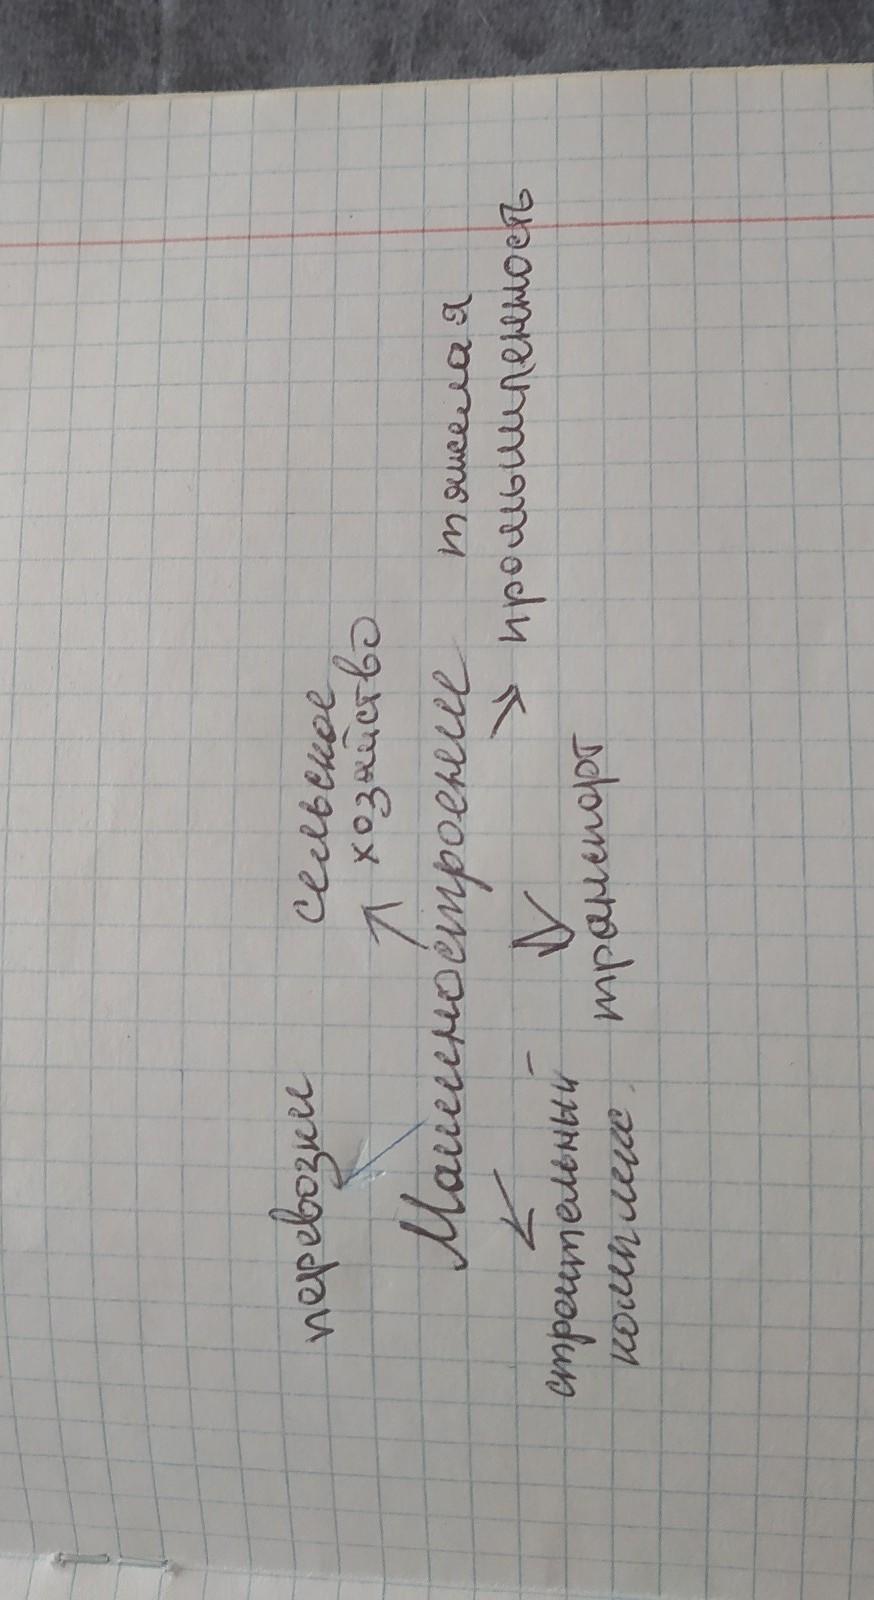 перевозки
сельское
хозяйство
Машиностроение
тяжелая
промышленность
строительный
комплекс
транспорт